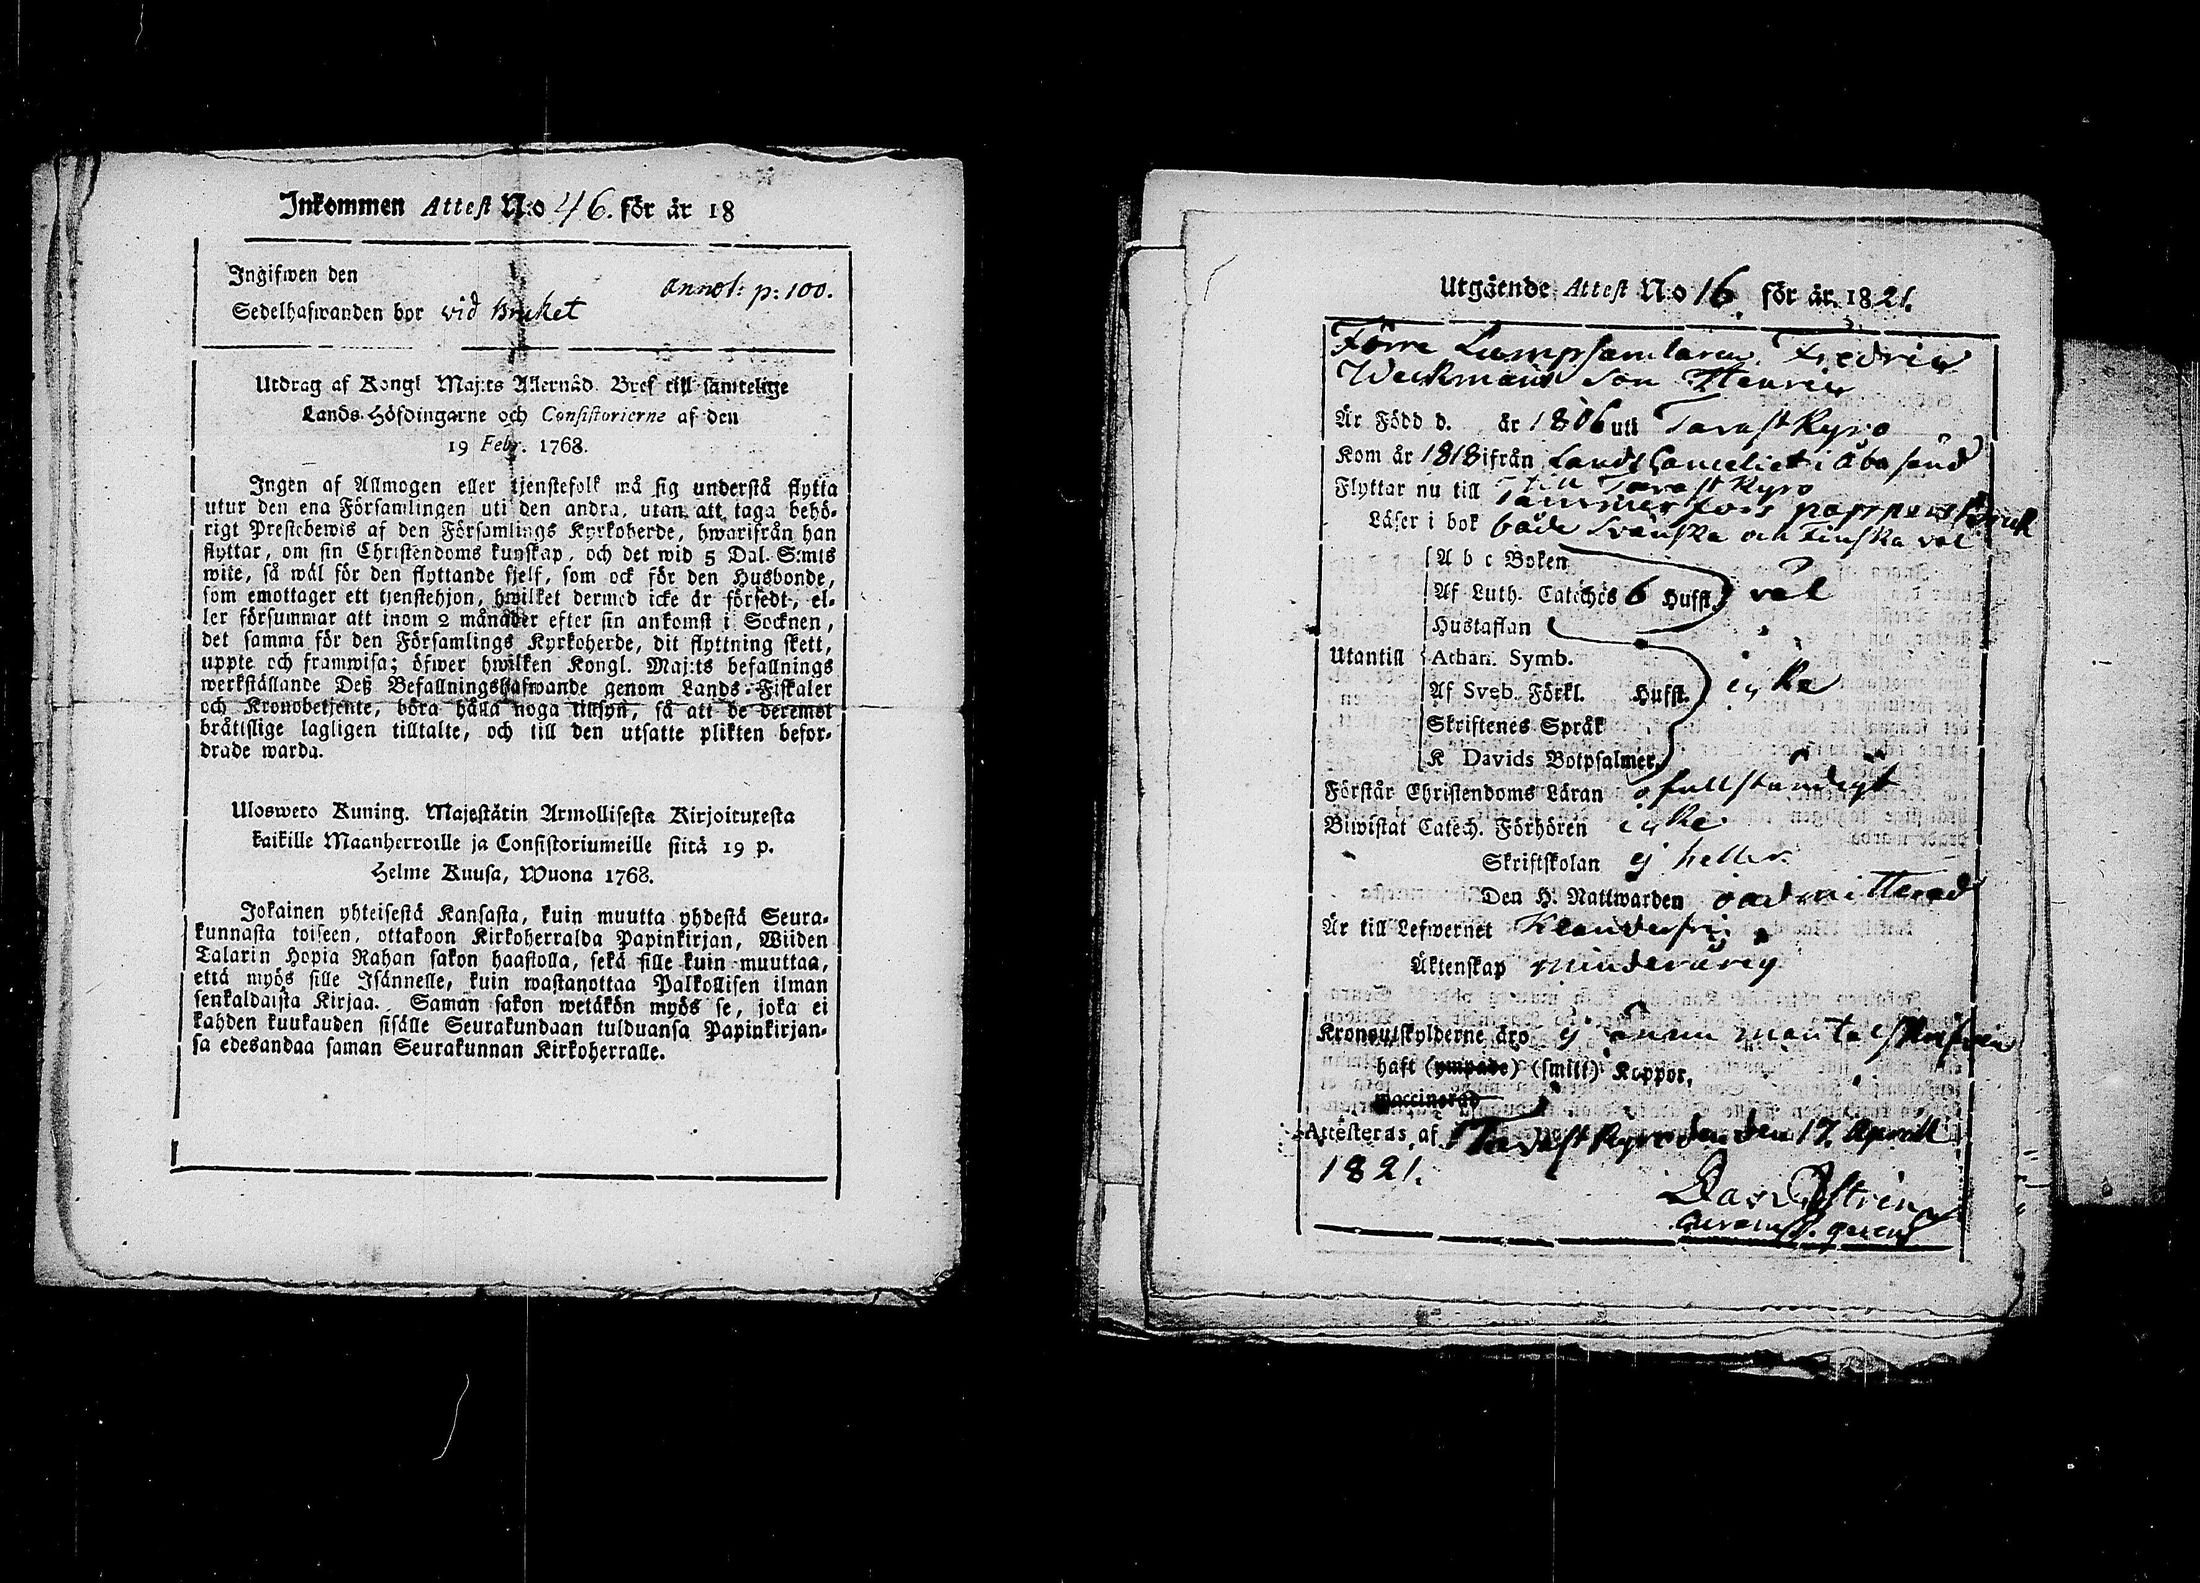 Inkommen Attest N:o 46. för år 18
Ingifwen den
annot: p: 100.
Sedelhafwanden bor vid Bruket
Utdrag af Kongl Maj:ts Allernåd. Bref till samtelige
Lands-Höfdingarne och Consistorierne af den
19 Febr. 1768.
Ingen af Allmogen eller tjenstefolk må sig understå flytta
utur den ena Församlingen uti den andra, utan att taga behö-
rigt Prestebewis af den Församlings Kyrkoherde, hwarifrån han
flyttar, om sin Christendoms kunskap, och det wid 5 Dal. S:mts
wite, så wäl för den flyttande sjelf, som ock för den Husbonde,
som emottager ett tjenstehjon, hwilket dermed icke är försedt, el-
ler försummar att inom 2 månader efter sin ankomst i Socknen,
det samma för den Församlings Kyrkoherde, dit flyttning skett,
uppte och framwisa; öfwer hwilken Kongl. Maj:ts befallnings
werkställande Deß Befallningshafwande genom Lands-Fiskaler
och Kronobetjente, böra hålla noga tillsyn, så att de deremot
bråtislige lagligen tilltalte, och till den utsatte plikten befor-
drade warda.
Uloswero Kuning. Majestätin Armollisesta Kirjoituxesta
kaikille Maanherroille ja Consistoriumeille siitä 19 p.
Helme Kuusa, Wuona 1768.
Jokainen yhteisestä Kansasta, kuin muutta yhdestä Seura-
kunnasta toiseen, ottakoon Kirkoherralda Papinkirjan, Wiiden
Talarin Hopia Rahan sakon haastolla, sekä sille kuin muuttaa,
että myös sille Isännelle, kuin wastanottaa Palkollisen ilman
senkaldaista Kirjaa. Saman sakon wetäkön myös se, joka ei
kahden kuukauden sisälle Seurakundaan tulduansa Papinkirjan-
sa edesandaa saman Seurakunnan Kirkoherralle.
Utgående Attest N:o 16. för år 1821.
Förre Lumpsamlaren Fredric
Weckmans son Henric
Är Född d. år 1806 uti Tavastkyro
Kom år 1818 ifrån Lands Canceliet i Åbo sänd
till Tavastkyro
Flyttar nu till Tammerfors pappersbruk
Läser i bok både Svenska och Finska väl
A b c Boken
Af Luth. Cateches 6 Hufst. väl
Hustaflan
Utantill Athan. Symb.
Af Sveb. Förkl. Hufst. icke
Skriftenes Språk
K Davids Botpsalmer.
Förstår Christendoms Läran ofullständigt
Biwistat Catech. Förhören icke
Skriftskolan ej heller.
Den H. Nattwarden oadmitterad
Är till Lefwernet Klanderfri
Äktenskap minderårig
Kronoutskylderne äro ej ännu mantalskrifven
haft (ympade) (smitt) Koppor,
waccinerad
Attesteras af Tavastkyro den 17 April
1821.